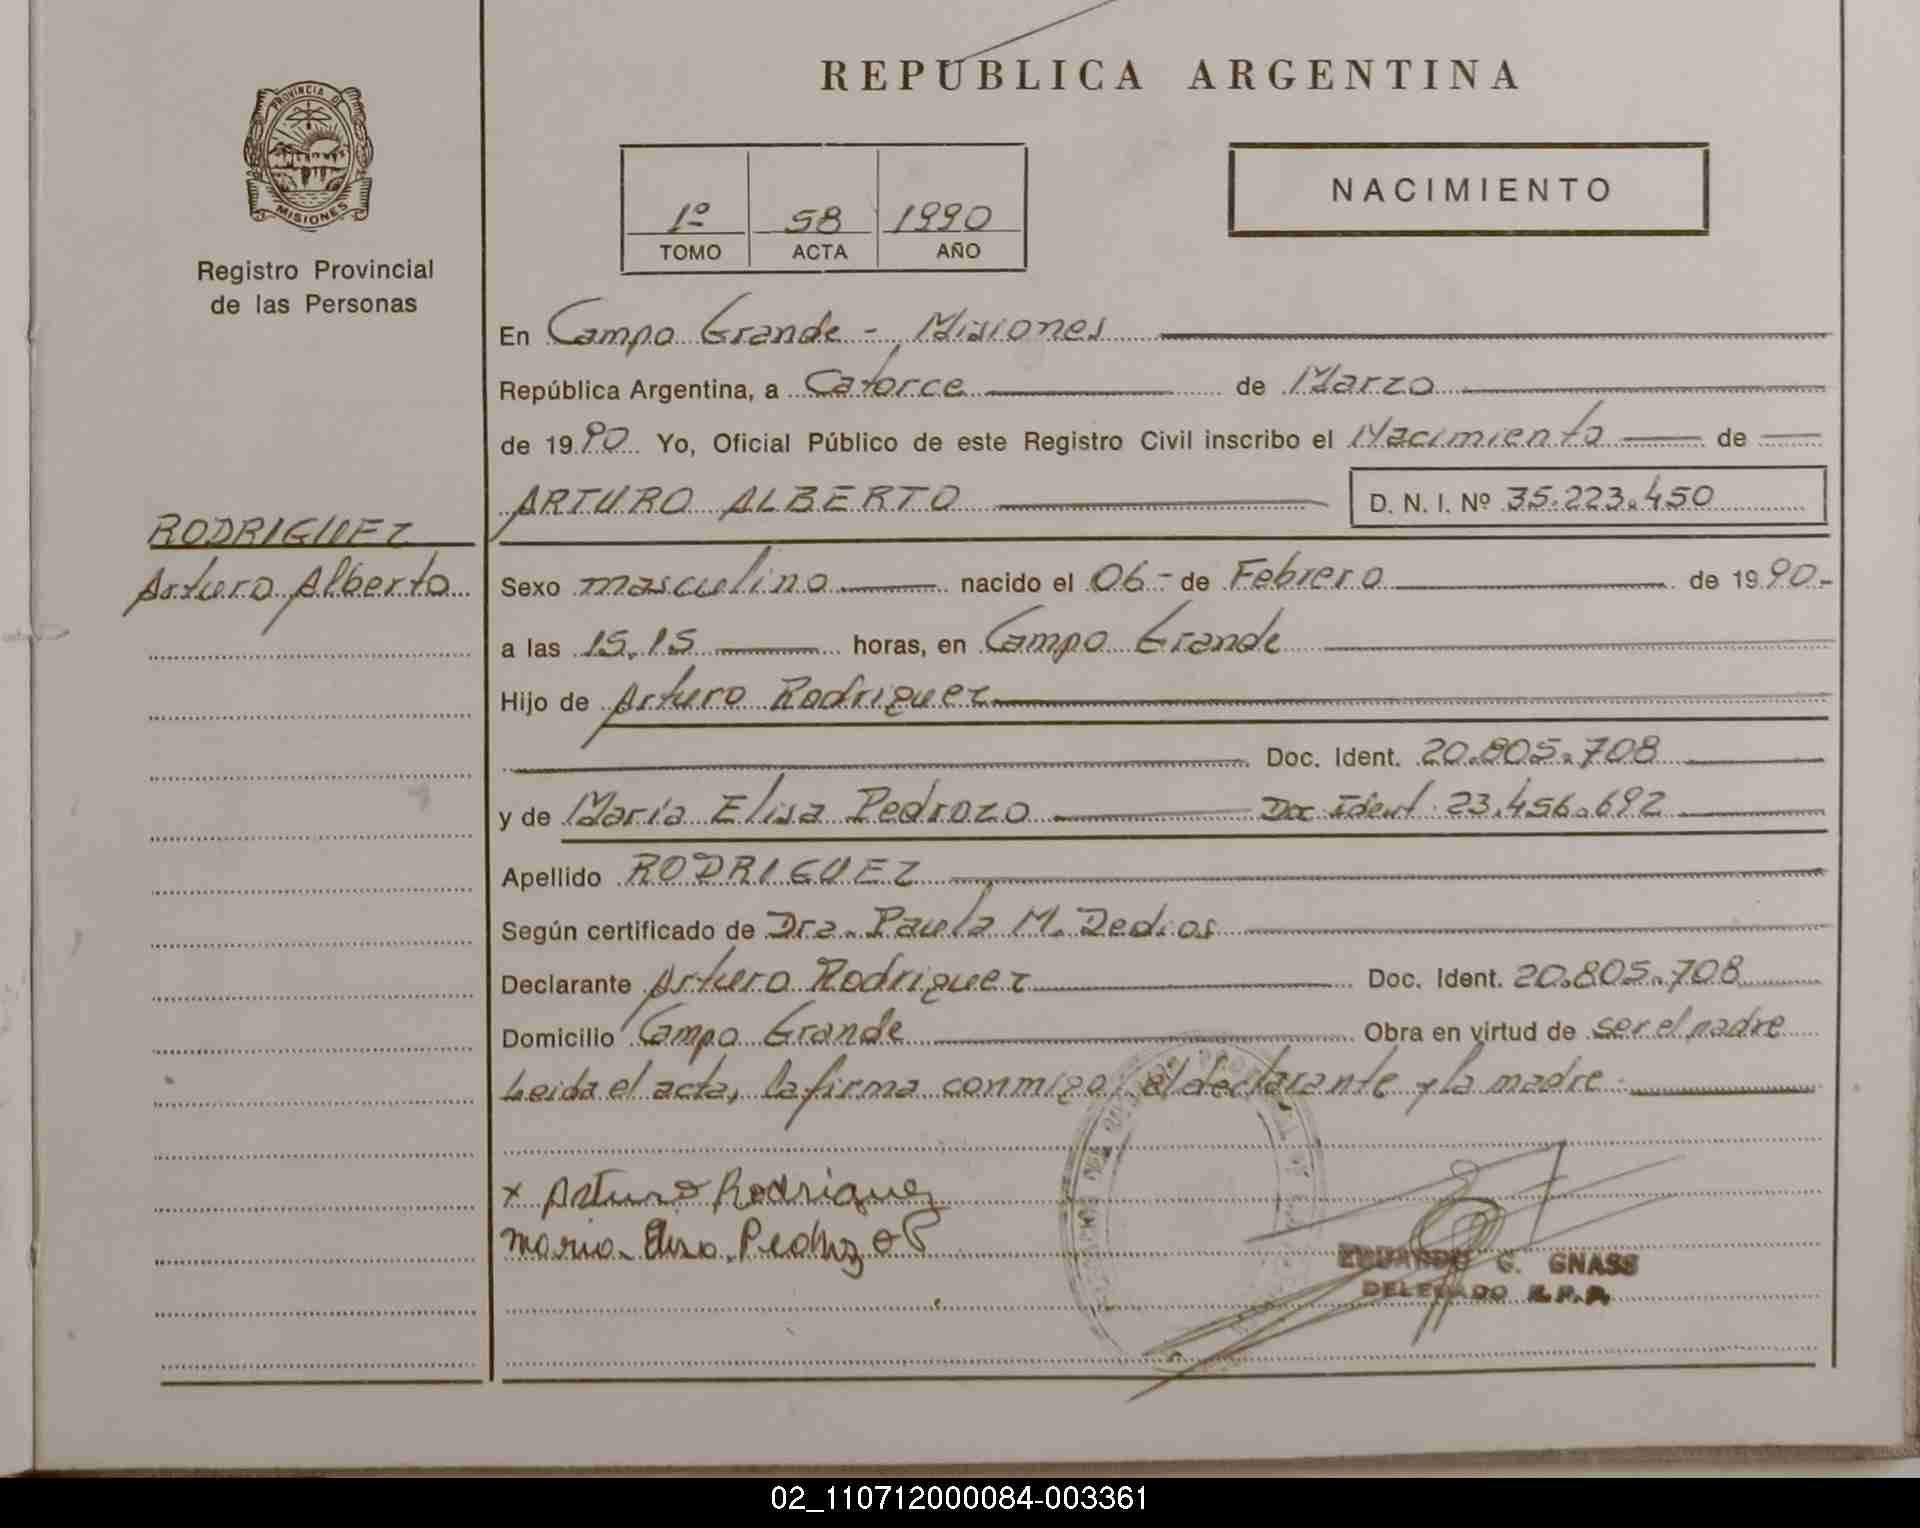 REPUBLICA ARGENTINA
PROVINCIA DE
MISIONES
Registro Provincial
de las Personas
1º 58 1990
TOMO ACTA AÑO
NACIMIENTO
En Campo Grande - Misiones
República Argentina, a Catorce de Marzo
de 1990 Yo, Oficial Público de este Registro Civil inscribo el Nacimiento de
ARTURO ALBERTO D. N. I. Nº 35.223.450
RODRIGUEZ
Arturo Alberto
Sexo masculino nacido el 06.- de Febrero de 1990.-
a las 15.15 horas, en Campo Grande
Hijo de Arturo Rodriguez
Doc. Ident. 20.805.708
y de María Elisa Pedrozo Doc Ident. 23.456.692
Apellido RODRIGUEZ
Según certificado de Dra. Paula M. Dedios
Declarante Arturo Rodriguez Doc. Ident. 20.805.708
Domicilio Campo Grande Obra en virtud de ser el padre
Leida el acta, la firma conmigo, el declarante y la madre.
x Arturo Rodriguez
Maria Elisa Pedrozo
EDUARDO G. GNASS
DELEGADO R.P.P.
02_110712000084-003361